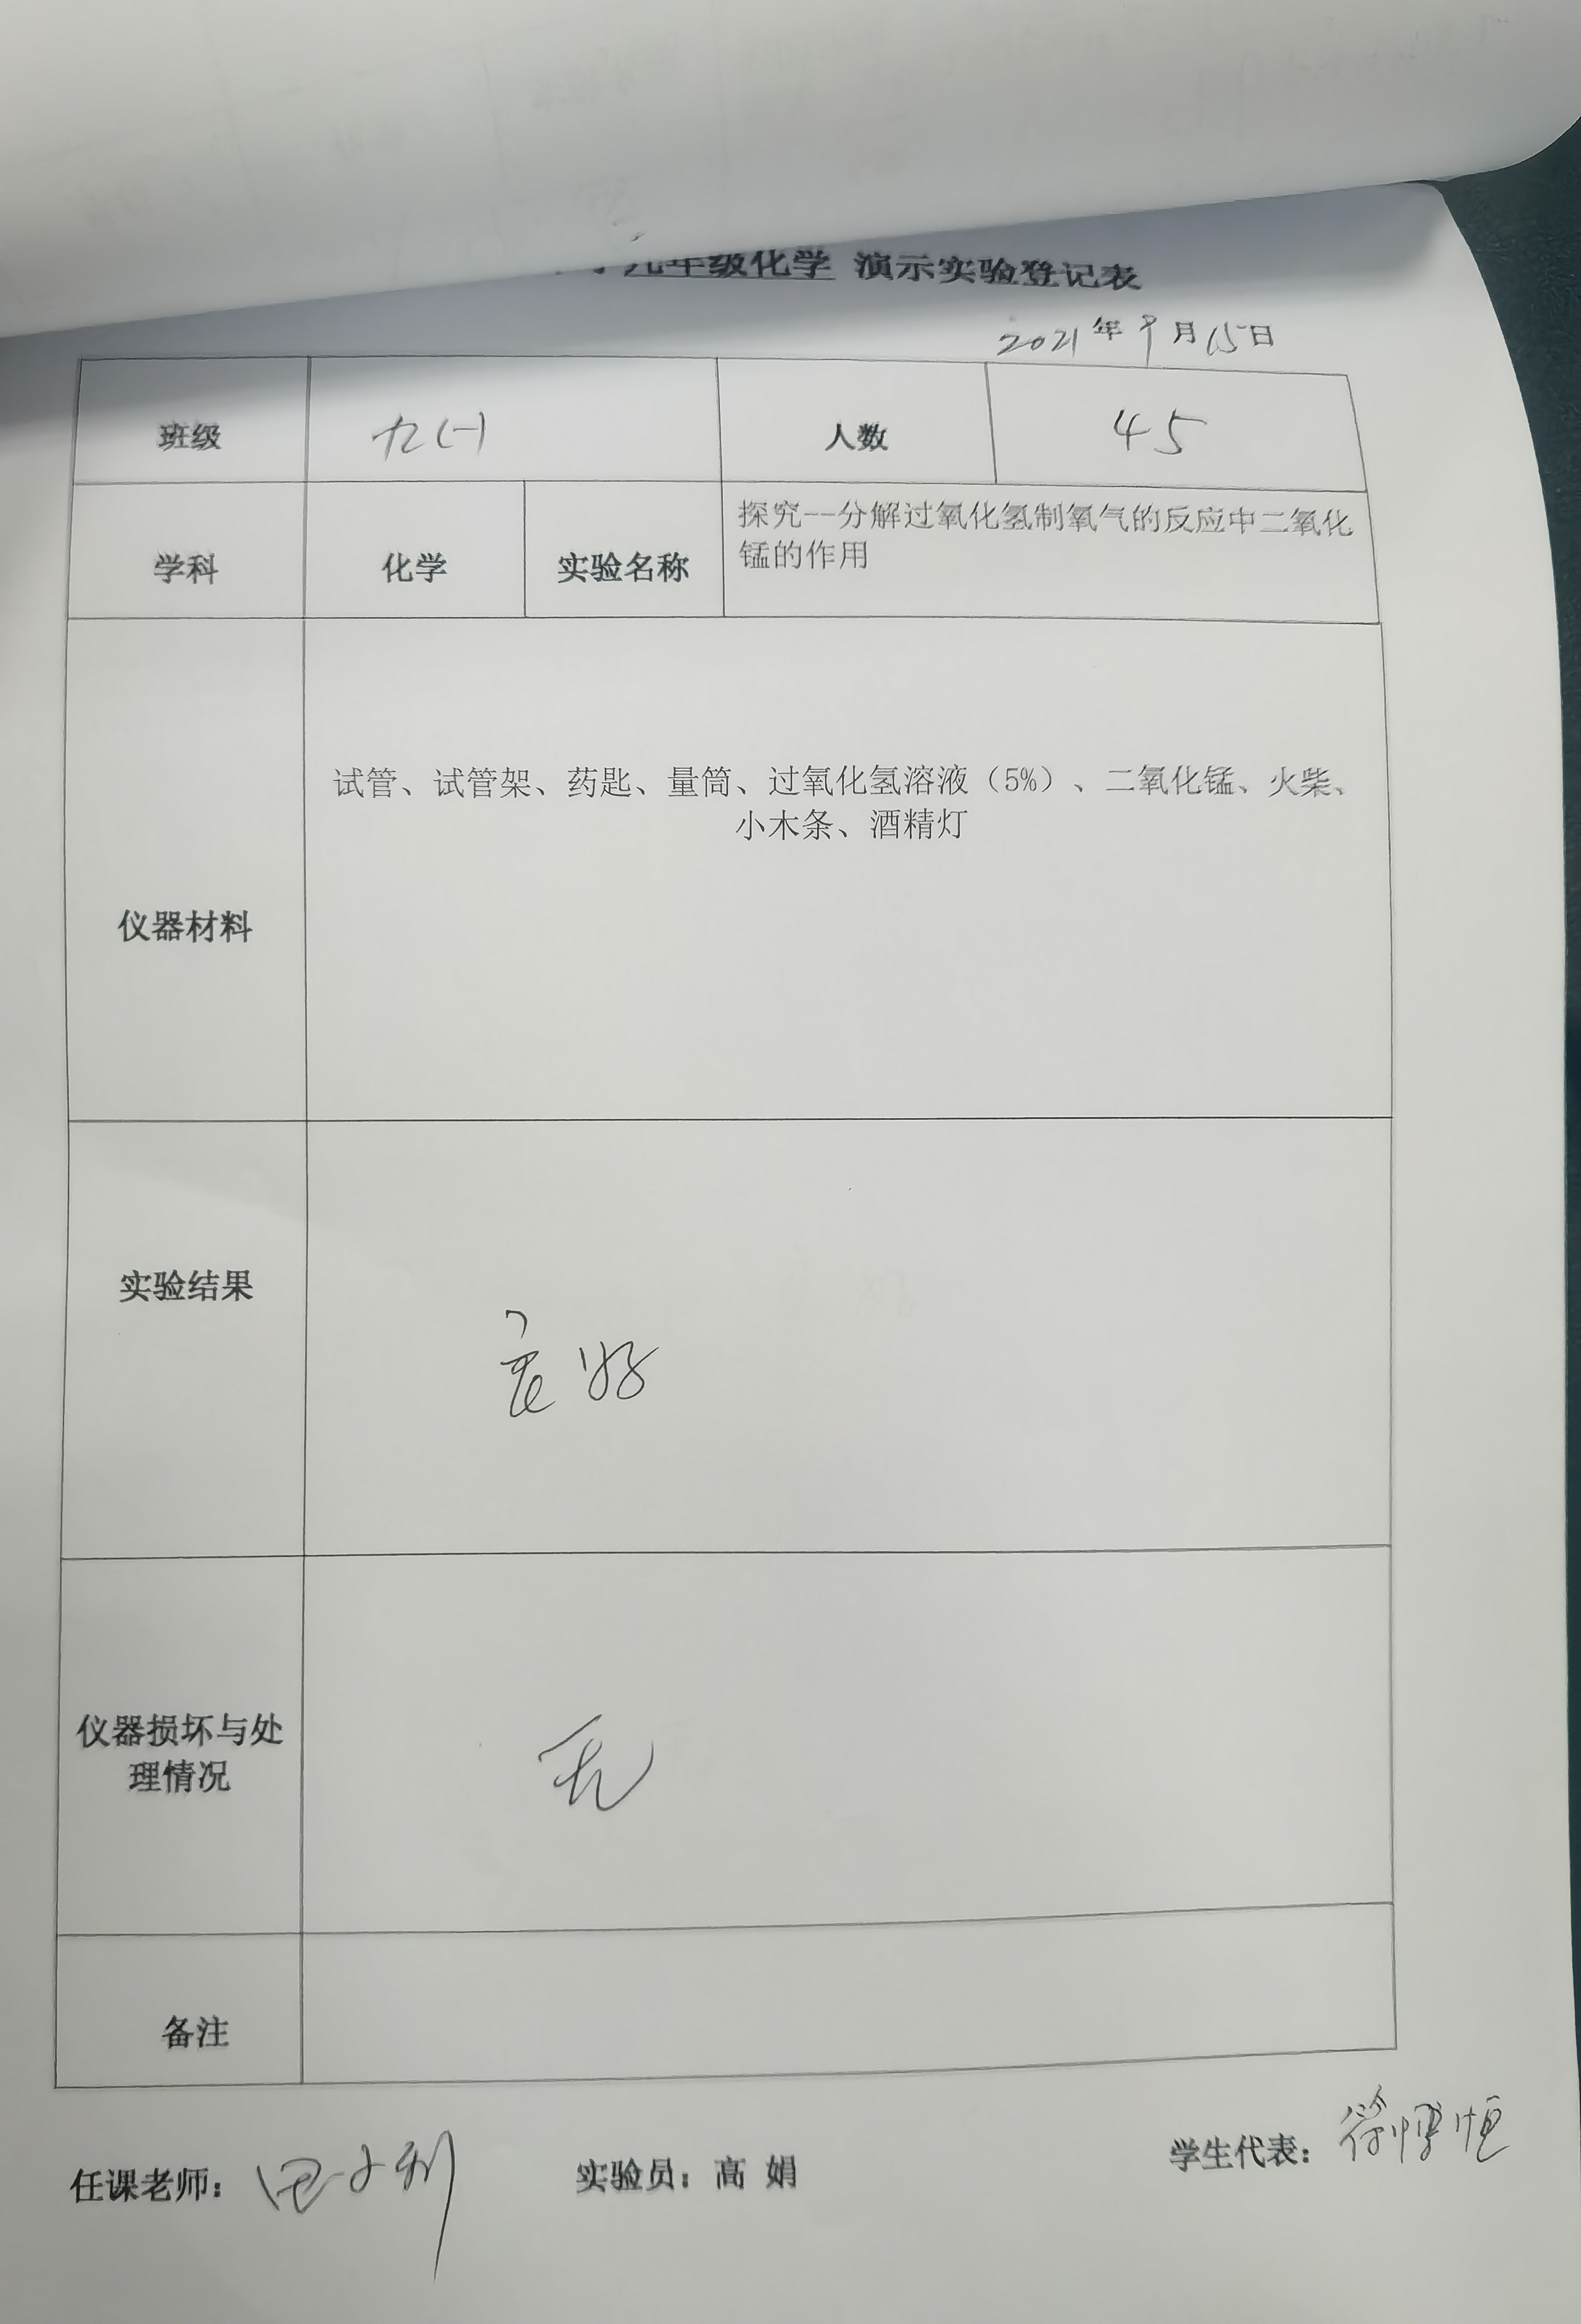 九年级化学 演示实验登记表
2021年9月15日
班级 九(一) 人数 45
学科 化学 实验名称 探究--分解过氧化氢制氧气的反应中二氧化
锰的作用
试管、试管架、药匙、量筒、过氧化氢溶液（5%）、二氧化锰、火柴、
小木条、酒精灯
仪器材料
实验结果
良好
仪器损坏与处
理情况
无
备注
任课老师： 实验员：高 娟 学生代表：